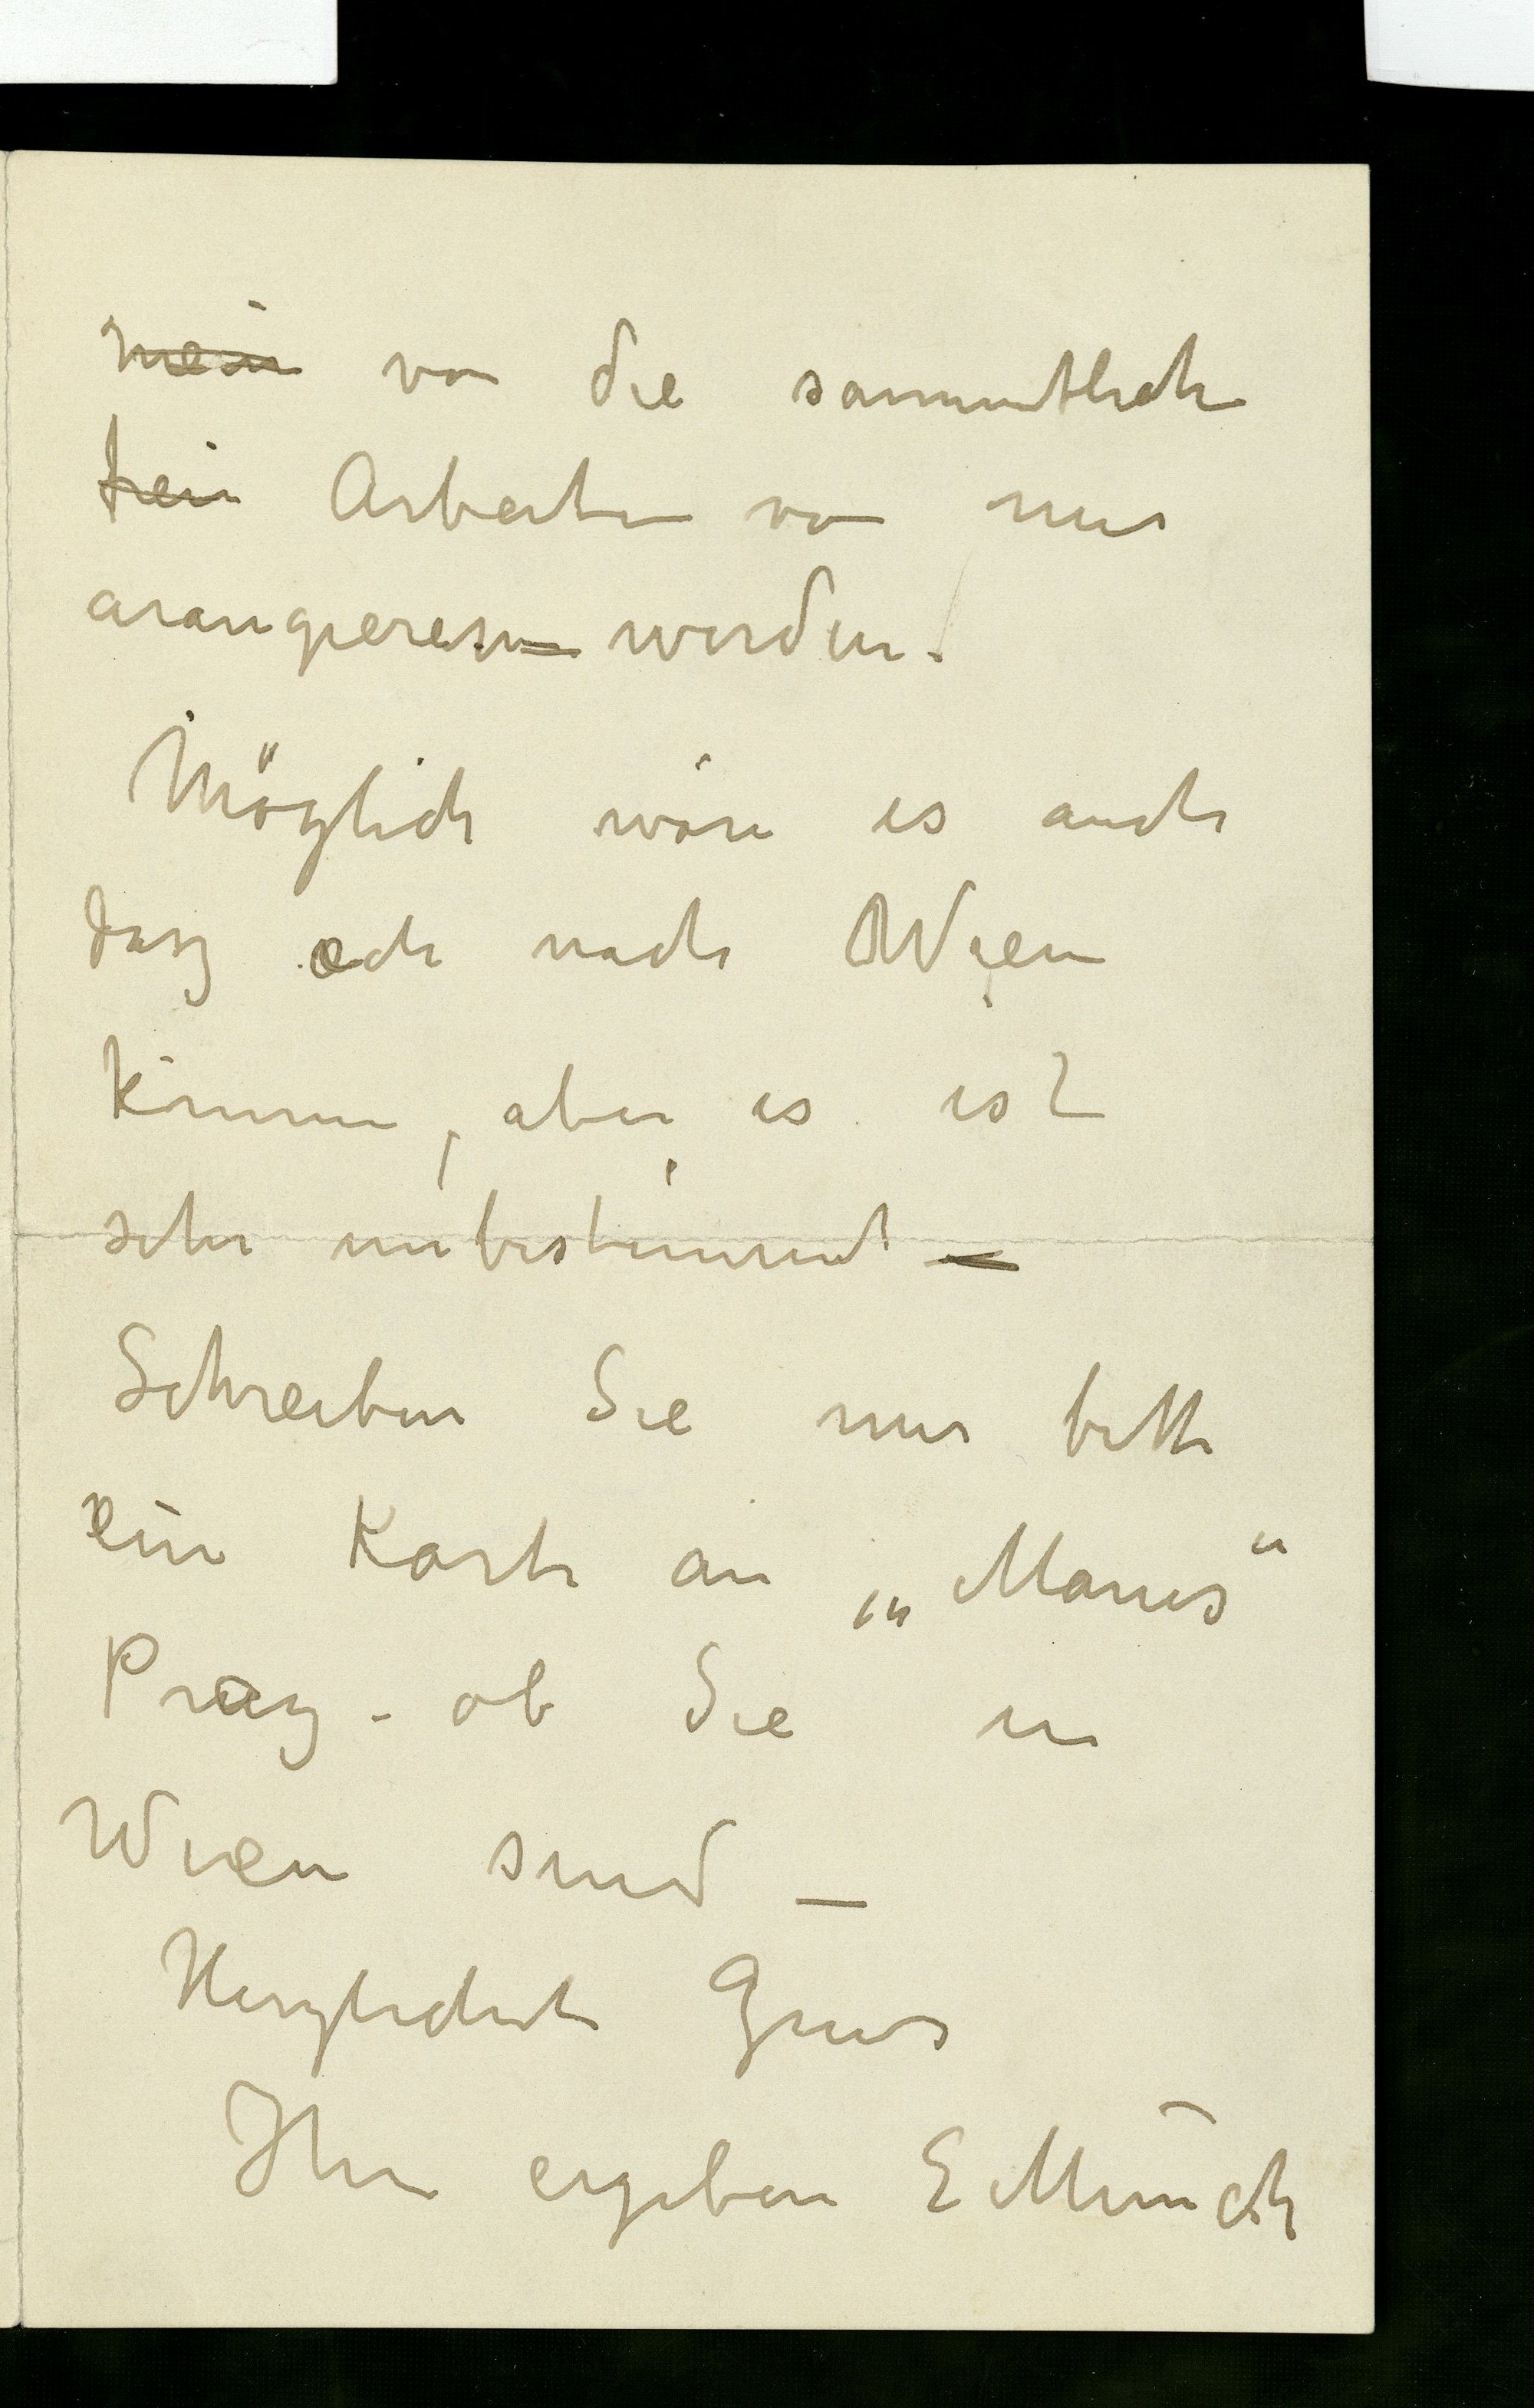 mein von die sammtliche
kein Arbeiten von mir
arangieren werden.
Möglich wäre es auch
dasz ich nach Wien
komme, aber es ist
sehr unbestimmt –
Schreiben Sie mir bitte
ein Karte an „Manes"
Prag – ob Sie in
Wien sind –
Herzlichste Gruss
Ihr ergeben E Munch